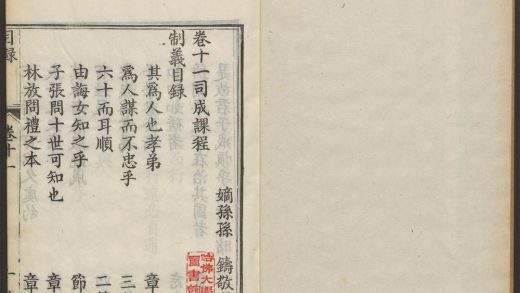 卷十一司成課程
嫡孫孫鑄敬
制義目錄
其爲人也孝弟 章
爲人謀而不忠乎 三
六十而耳順 二
由誨女知之乎 節
子張問十世可知也 章
林放問禮之本 章
目錄 卷十一
哈佛大學
圖書館